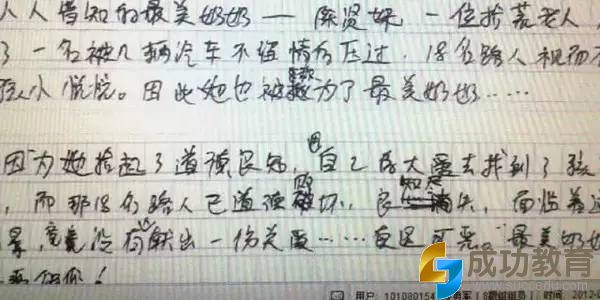 人人皆知的最美奶奶——陈贤妹 一位拾荒老人,
了一名被几辆汽车不留情的压过,18名路人视而不
孩小悦悦。因此她也被称为了最美奶奶……
因为她拾起了道德良知,自己用大爱去找到了孩
,而那18名路人已道德败坏,良知丧失,面临着这
景,竟没有献出一份关爱……更是可恶。最美奶奶
成功教育
www.succedu.com
用户: 101080154 时间 2012-